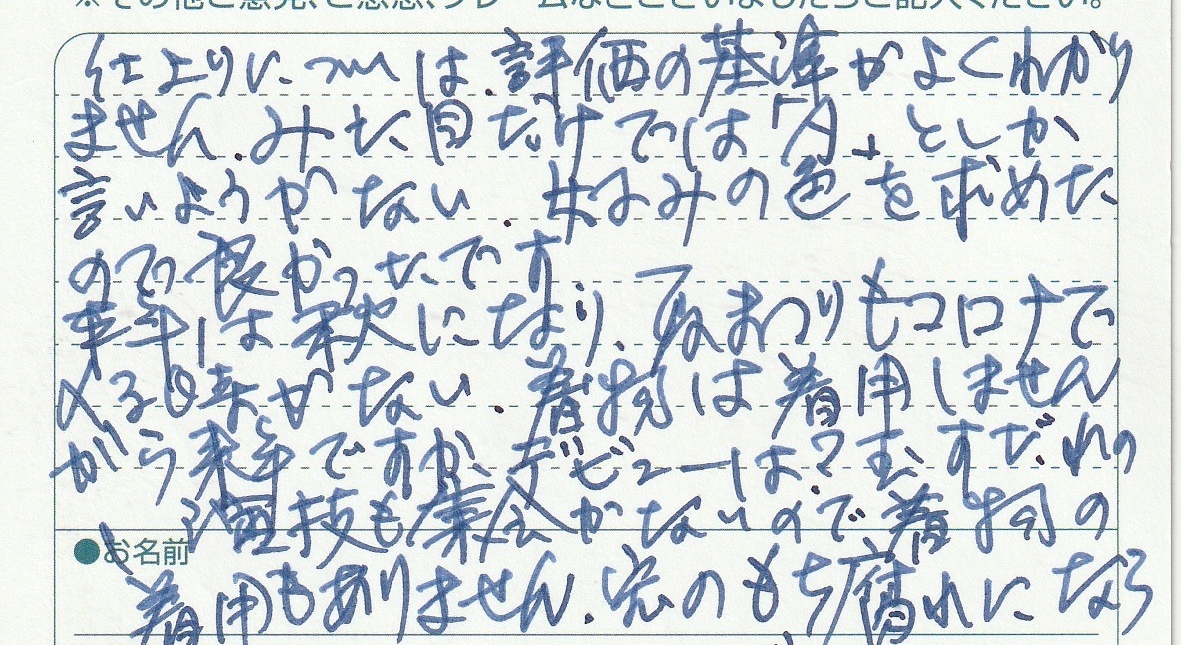 ※その他ご意見、ご感想、クレームなどございましたらご記入ください。
仕上りについては、評価の基準がよくわかり
ません。みた目だけでは「○」としか
言いようがない。好みの色を求めた
ので良かったです
半年は秋になり、夏まつりもコロナで
出来がない。着物は着用しません
から来年ですか、デビューは?玉すだれの
演技も集会がないので着物の
●お名前
着用もありません。宝のもち腐れになら